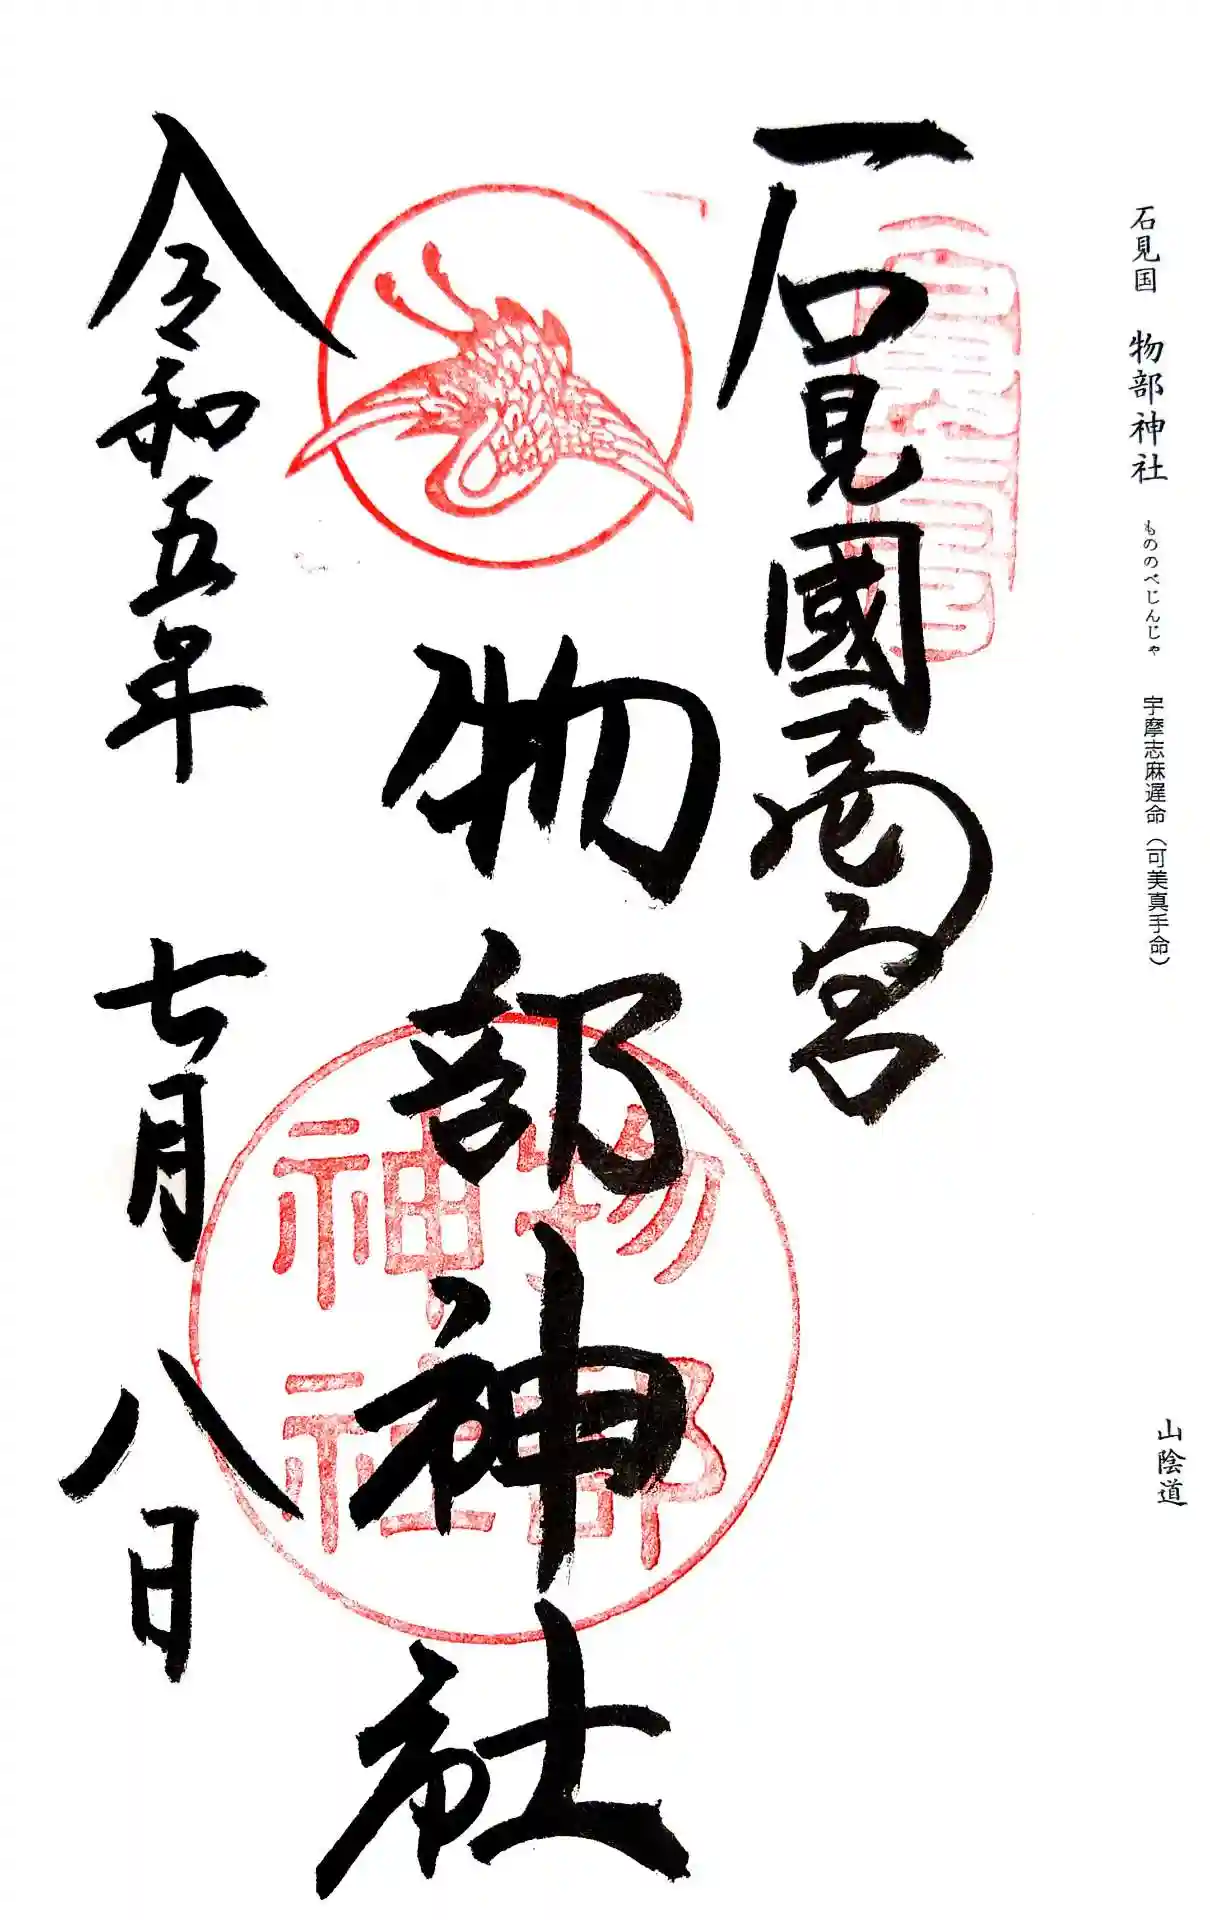 石見国 物部神社 もののべじんじゃ 宇摩志麻遅命(可美真手命)
山陰道
石見國壱宮
物部神社
令和五年 七月 八日
物部
神社